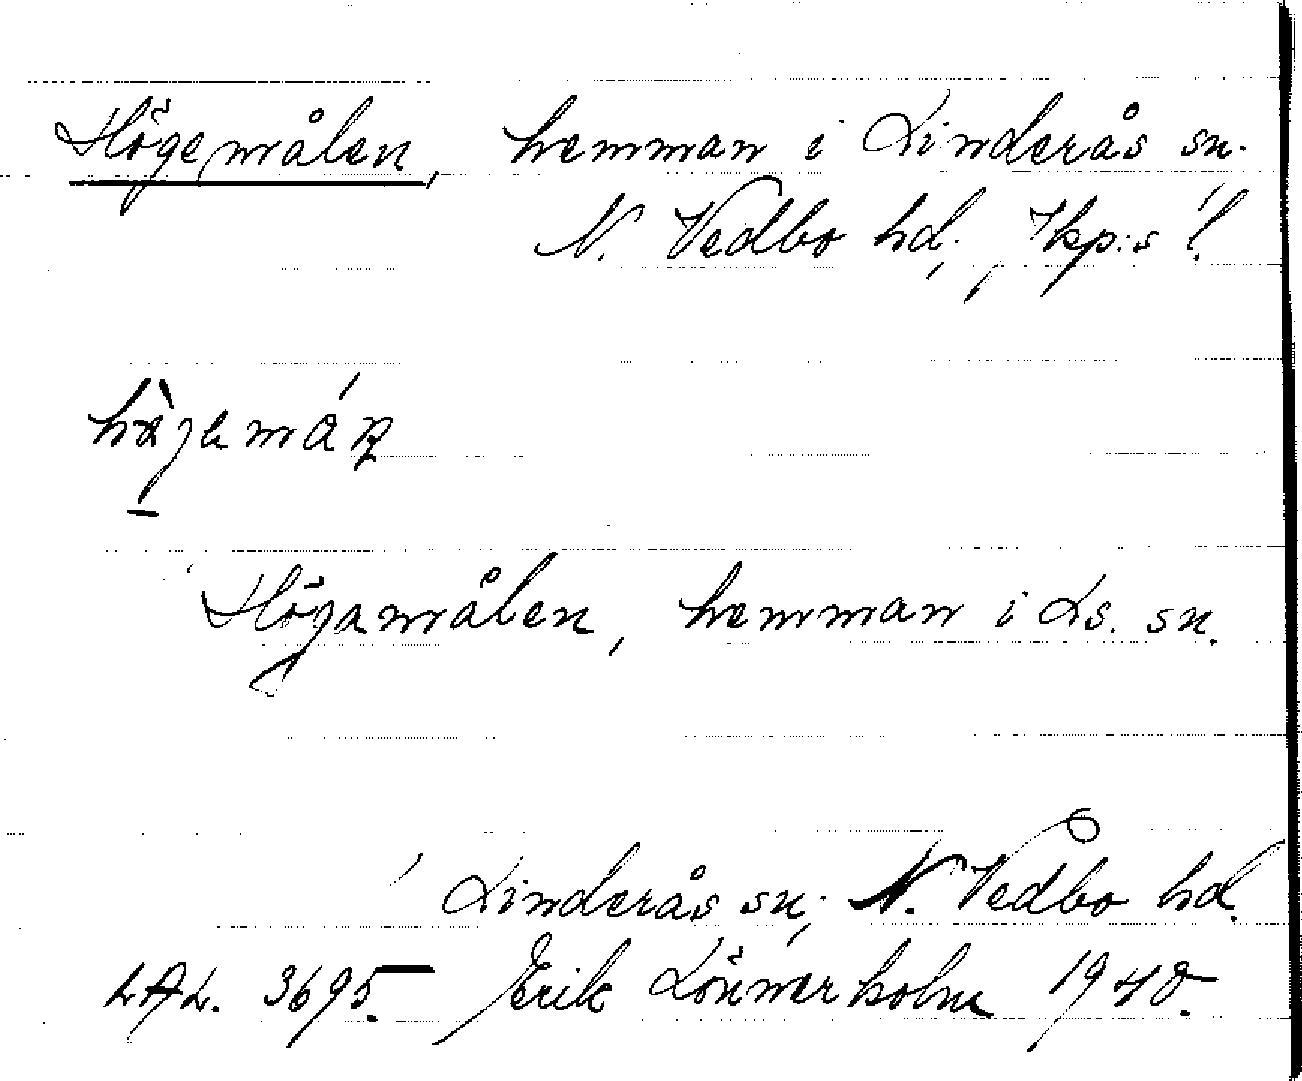 Högemålen, hemman i Linderås sn.
N. Vedbo hd., Jkp:s l.
Högamålen, hemman i Ls. sn.
Linderås sn; N. Vedbo hd.
LAL. 3695. Erik Lönnerholm 1940.